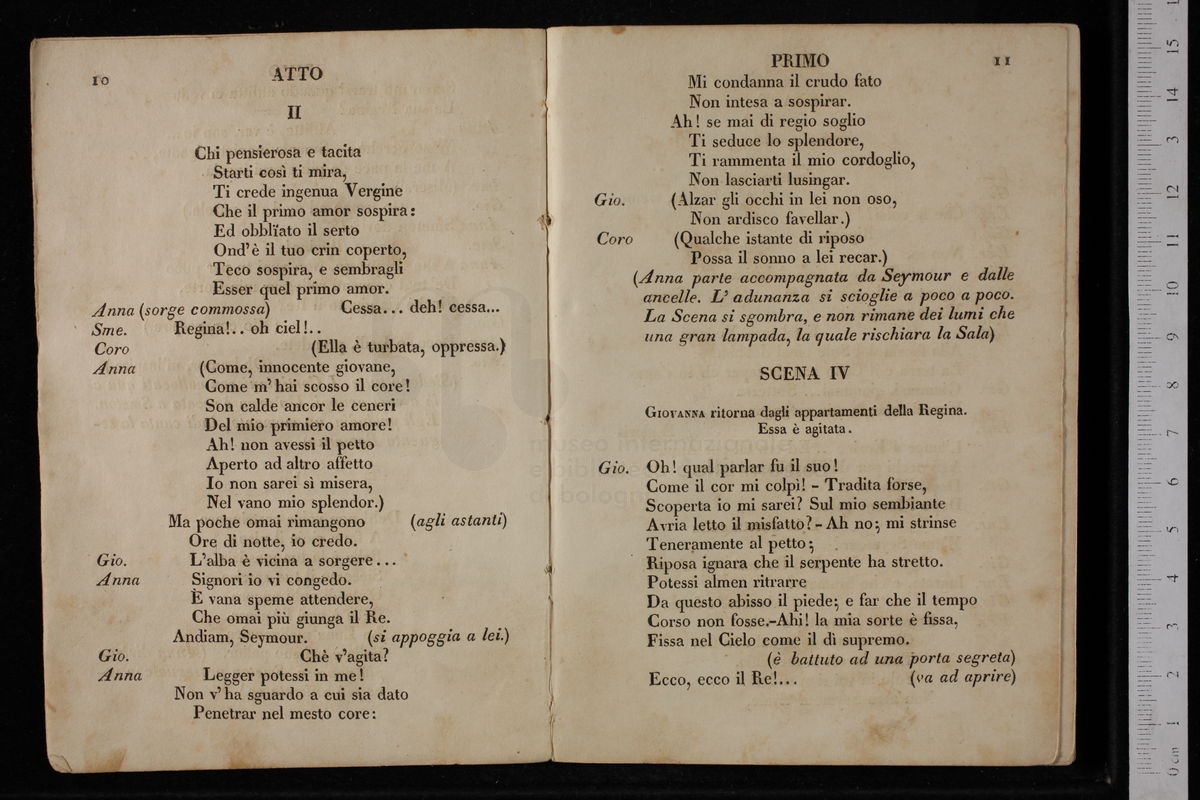 10
ATTO
II
Chi pensierosa e tacita
Starti così ti mira,
Ti crede ingenua Vergine
Che il primo amor sospira:
Ed obblïato il serto
Ond'è il tuo crin coperto,
Teco sospira, e sembragli
Esser quel primo amor.
Anna (sorge commossa) Cessa... deh! cessa...
Sme. Regina!.. oh ciel!..
Coro (Ella è turbata, oppressa.)
Anna (Come, innocente giovane,
Come m'hai scosso il core!
Son calde ancor le ceneri
Del mio primiero amore!
Ah! non avessi il petto
Aperto ad altro affetto
Io non sarei sì misera,
Nel vano mio splendor.)
Ma poche omai rimangono (agli astanti)
Ore di notte, io credo.
Gio. L'alba è vicina a sorgere...
Anna Signori io vi congedo.
È vana speme attendere,
Che omai più giunga il Re.
Andiam, Seymour. (si appoggia a lei.)
Gio. Chè v'agita?
Anna Legger potessi in me!
Non v'ha sguardo a cui sia dato
Penetrar nel mesto core:
PRIMO 11
Mi condanna il crudo fato
Non intesa a sospirar.
Ah! se mai di regio soglio
Ti seduce lo splendore,
Ti rammenta il mio cordoglio,
Non lasciarti lusingar.
Gio. (Alzar gli occhi in lei non oso,
Non ardisco favellar.)
Coro (Qualche istante di riposo
Possa il sonno a lei recar.)
(Anna parte accompagnata da Seymour e dalle
ancelle. L'adunanza si scioglie a poco a poco.
La Scena si sgombra, e non rimane dei lumi che
una gran lampada, la quale rischiara la Sala)
SCENA IV
GIOVANNA ritorna dagli appartamenti della Regina.
Essa è agitata.
Gio. Oh! qual parlar fu il suo!
Come il cor mi colpì! - Tradita forse,
Scoperta io mi sarei? Sul mio sembiante
Avria letto il misfatto? - Ah no; mi strinse
Teneramente al petto;
Riposa ignara che il serpente ha stretto.
Potessi almen ritrarre
Da questo abisso il piede; e far che il tempo
Corso non fosse.-Ahi! la mia sorte è fissa,
Fissa nel Cielo come il dì supremo.
(è battuto ad una porta segreta)
Ecco, ecco il Re!... (va ad aprire)
museo internazionale
e biblio
di bologn
0 cm 1 2 3 4 5 6 7 8 9 10 11 12 13 14 15